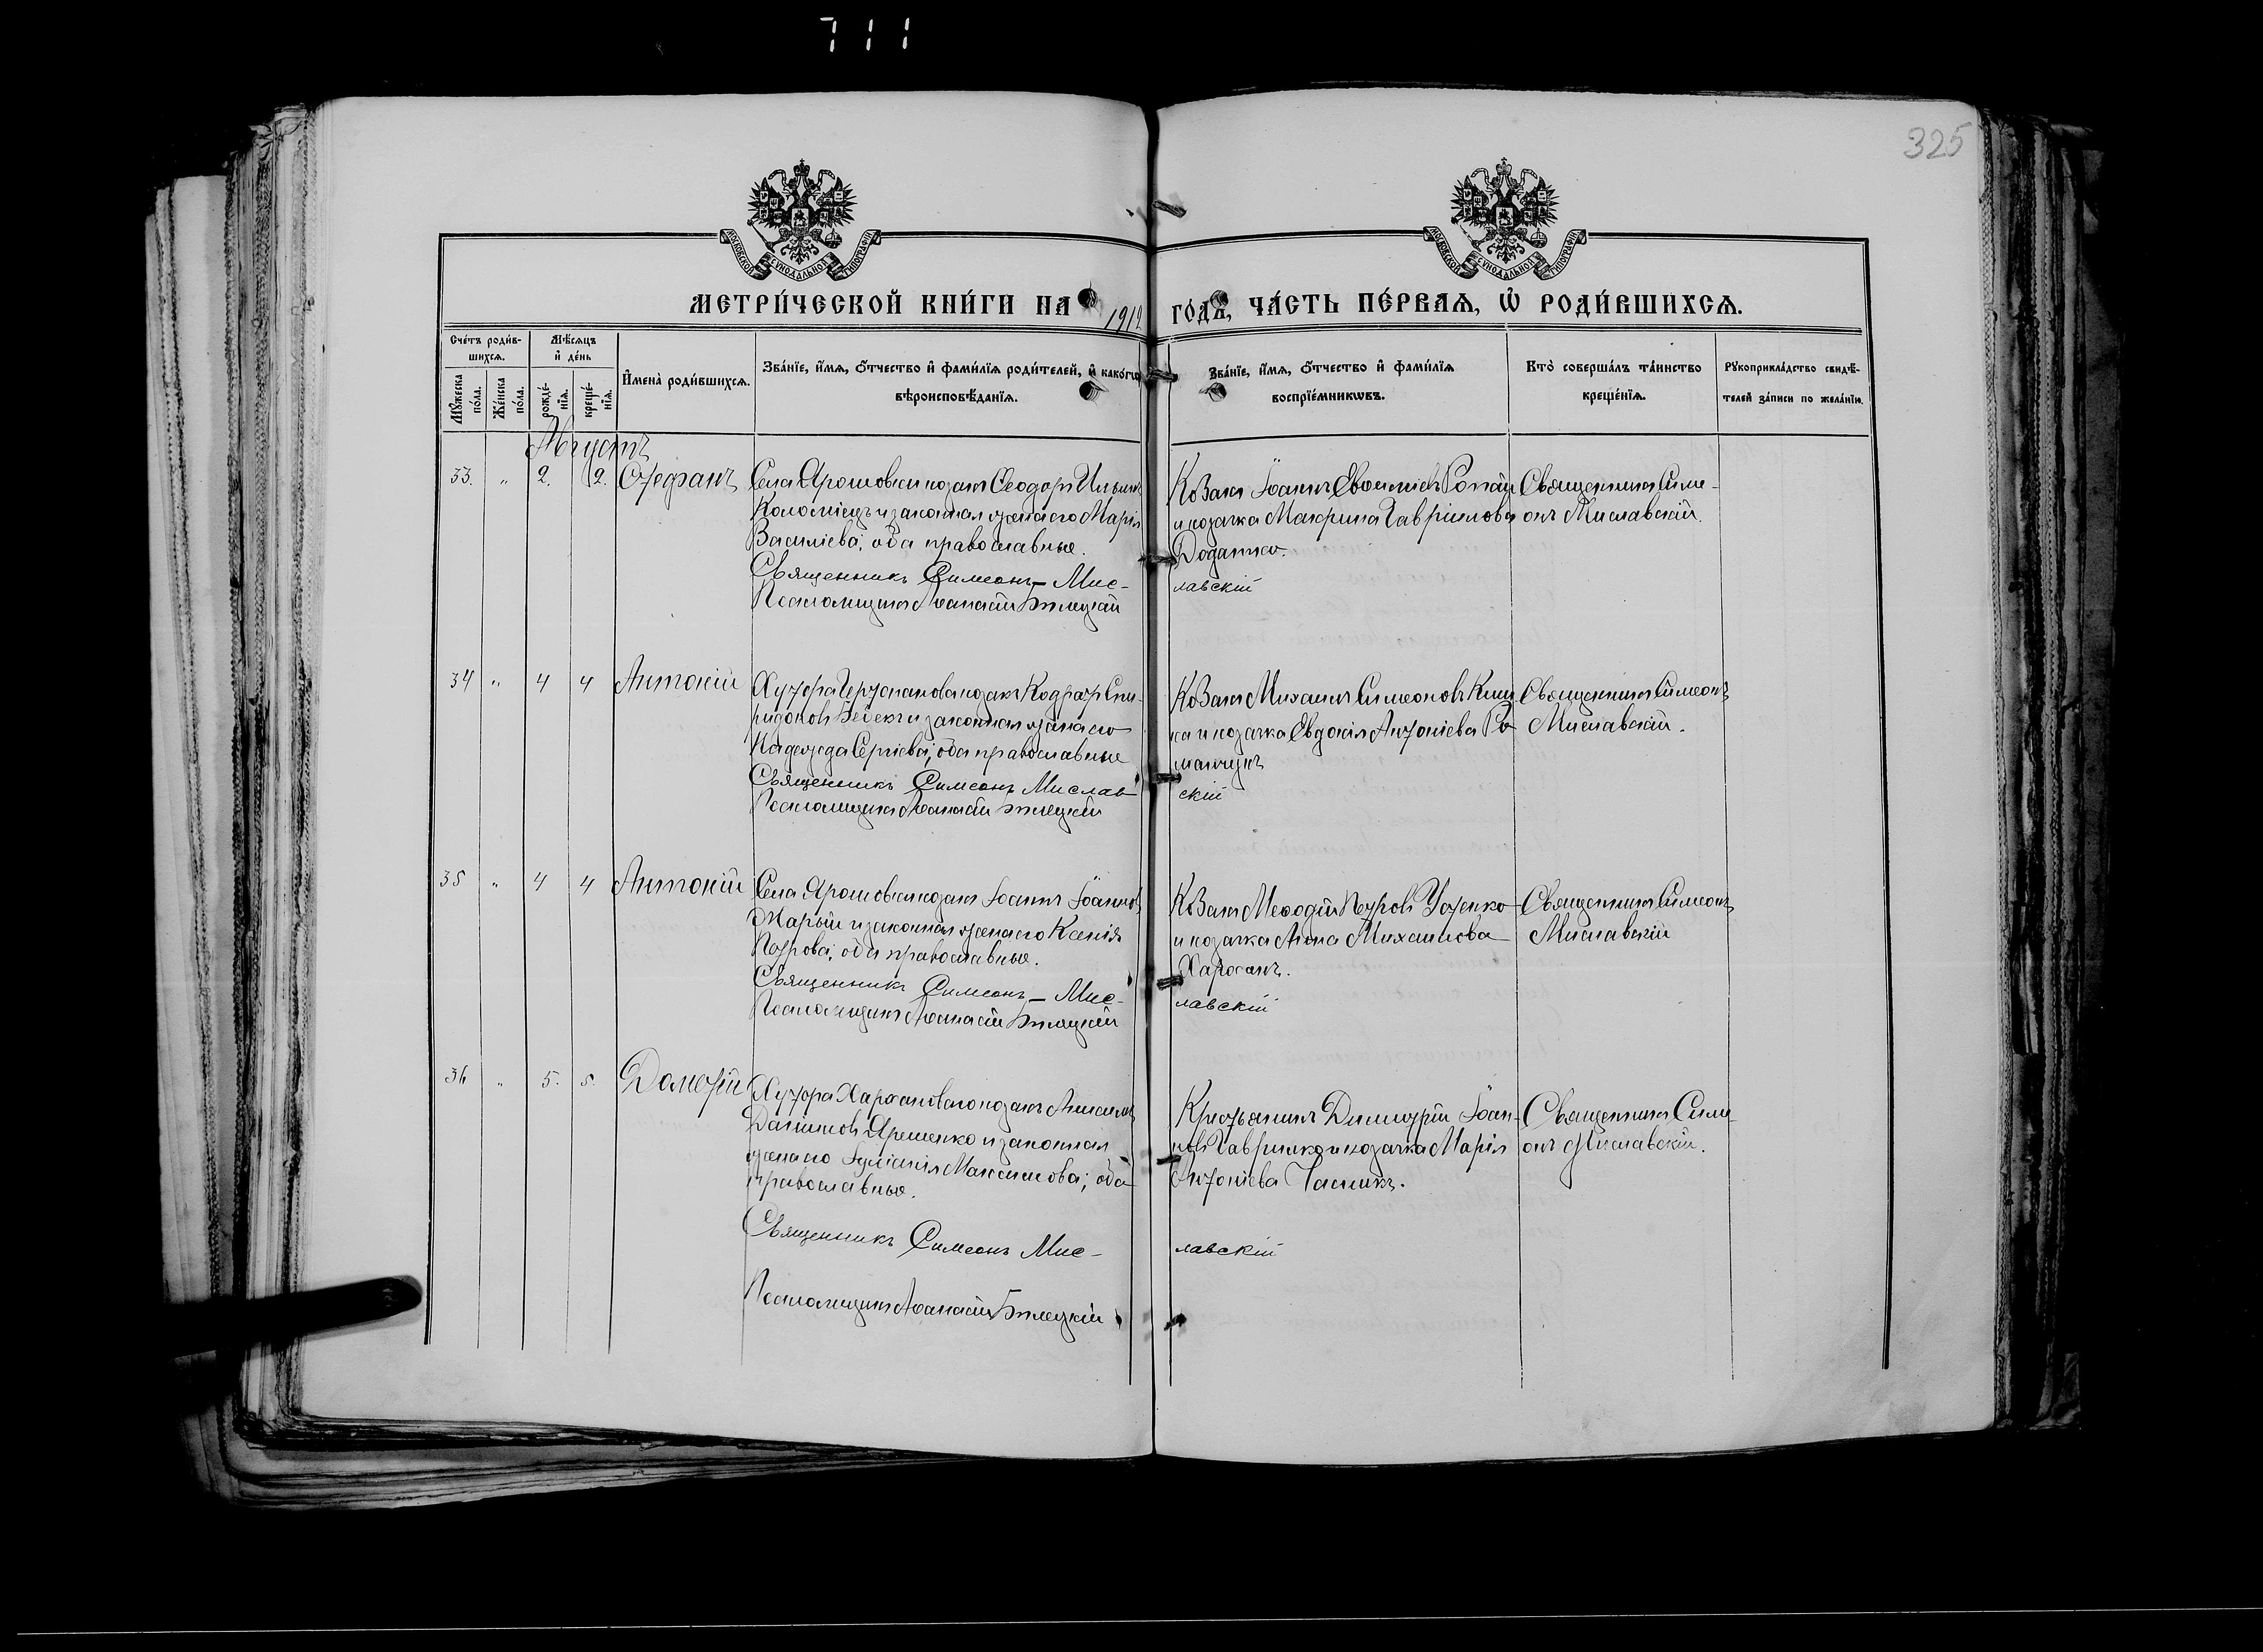 711
325
МОСКОВСКОЙ СѴНОДАЛЬНОЙ ТИПОГРАФІИ
МОСКОВСКОЙ СѴНОДАЛЬНОЙ ТИПОГРАФІИ
МЕТРИ́ЧЕСКОЙ КНИ́ГИ НА 1912 ГО́ДЪ, ЧА́СТЬ ПЕ́РВАѦ, Ѡ҆ РОДИ́ВШИХСѦ.
Сче́тъ роди́в-
шихсѧ.
Мꙋ́жеска по́ла.
Же́нска по́ла.
Мѣ́сѧцъ и҆ де́нь
рожде́-нїѧ.
креще́-нїѧ.
И҆мена̀ роди́вшихсѧ.
Зва́нїе, и҆́мѧ, ѻ҆́тчество и҆ фами́лїѧ роди́телей, и҆ како́гѡ
вѣроисповѣ́данїѧ.
Зва́нїе, и҆́мѧ, ѻ҆́тчество и҆ фами́лїѧ
воспрїе́мникѡвъ.
Кто̀ соверша́лъ та́инство
креще́нїѧ.
Рꙋкоприкла́дство свидѣ́-
телей за́писи по жела́нїю.
Августъ
33. " 2. 2. Стефанъ
Села Ярошовки козакъ Ѳеодоръ Ильинъ
Коломіецъ и законная жена его Марія
Василіева; оба православные.
Священникъ Симеонъ Мис-
Псаломщикъ Аѳанасій Бѣлецкій
Козакъ Іоаннъ
и козачка Макрина Гавріилова
лавскій
Священникъ Симе-
онъ Миславскій.
34 " 4 4 Антоній
Хутора козакъ Кодратъ Спи-
ридоновъ и законная жена его
Надежда Сергіева; оба православные
Священникъ Симеонъ Мислав
Псаломщикъ Аѳанасій Бѣлецкій
Козакъ Михаилъ Симеоновъ Кни
ка и козачка Евдокія Антоніева Ро
манчукъ
скій
Священникъ Симеонъ
Миславскій.
35 " 4 4 Антоній
Села Ярошовки козакъ Іоаннъ Іоанновъ
Жарый и законная жена его Ксенія
Петрова; оба православные.
Священникъ Симеонъ Мис-
Псаломщикъ Аѳанасій Бѣлецкій
Козакъ Меѳодій Петровъ Усенко
и козачка Анна Михаилова
Харсанъ.
лавскій
Священникъ Симеонъ
Миславскій
36 " 5. 5. Дометій
Хутора козакъ
Даниловъ Ярешенко и законная
жена его Іуліанія Максимова; оба
православные.
Священникъ Симеонъ Мис-
Псаломщикъ Аѳанасій Бѣлецкій
Крестьянинъ Димитрій Іоан-
новъ Гаврилко и козачка Марія
Антоніева
лавскій
Священникъ Симе-
онъ Миславскій.